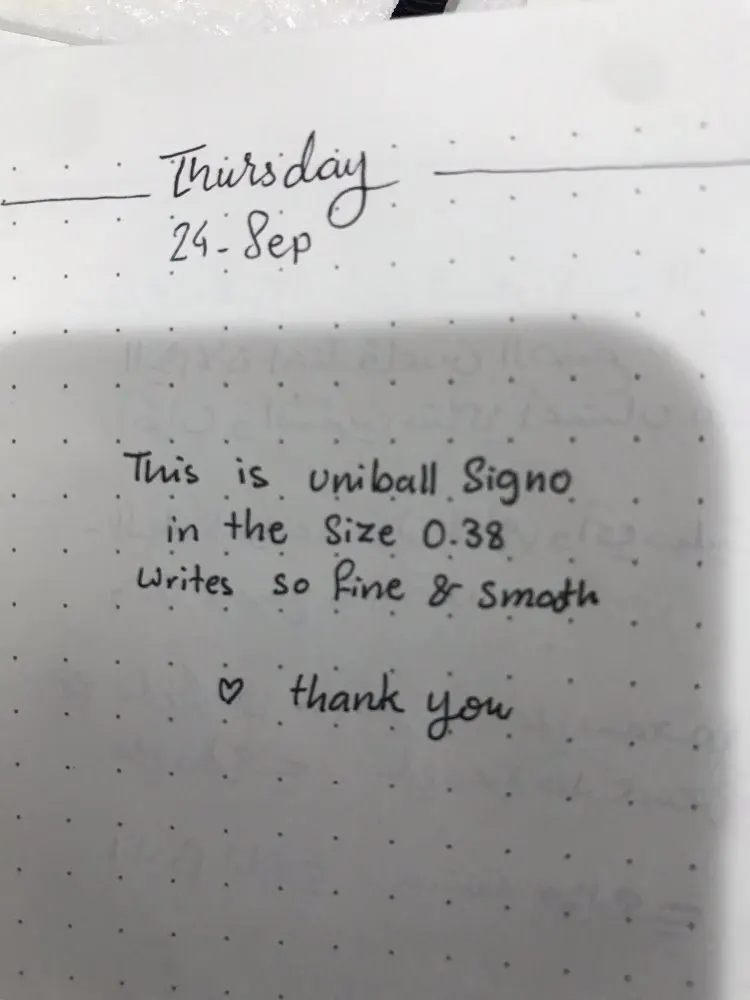 Thursday
24-Sep
This is uniball Signo
in the Size 0.38
writes so fine & smoth
♡ thank you